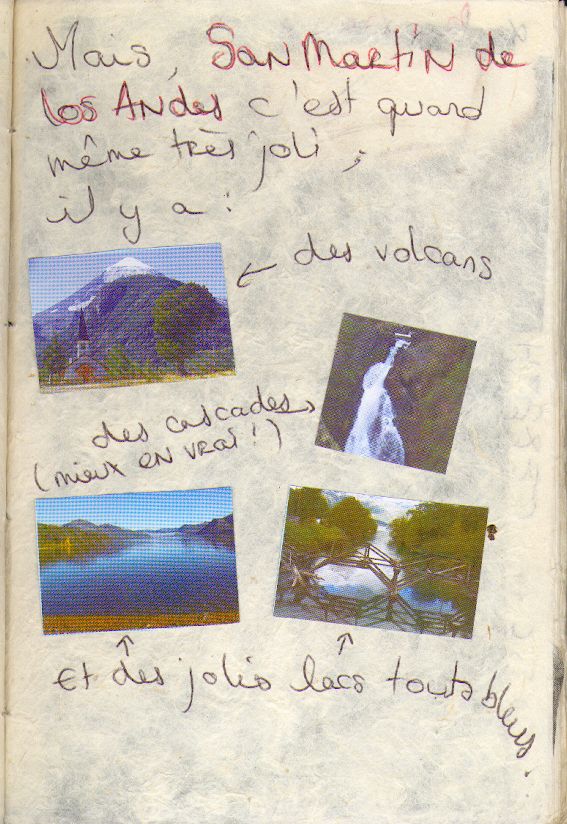 Mais, San Martin de
los Andes c'est quand
même très joli,
il y a :
des volcans
des cascades
(mieux en vrai !)
Et des jolis lacs touts bleus.